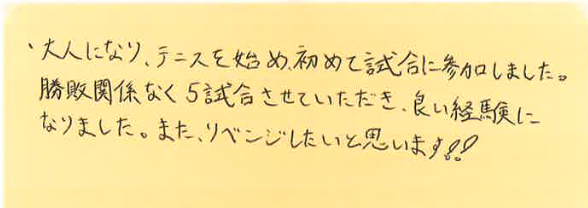 ・大人になり、テニスを始め、初めて試合に参加しました。
勝敗関係なく5試合させていただき、良い経験に
なりました。また、リベンジしたいと思います!!